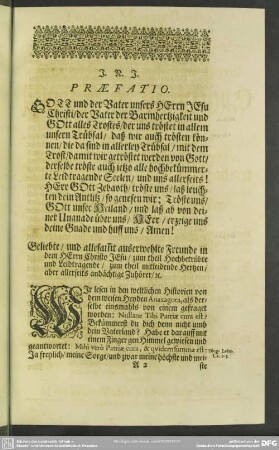 J. N. J.
PRÆFATIO.
GOTT und der Vater unsers HErrn JEsu
Christi/der Vater der Barmhertzigkeit und
GOtt alles Trostes/der uns tröstet in allem
unsern Trübsal/ daß wir auch trösten kön-
nen/ die da sind in allerley Trübsal/ mit dem
Trost/damit wir getröstet werden von Gott/
derselbe tröste auch ietzo alle hochbekümmer-
te Leidtragende Seelen/ und uns allerseits!
HErr GOtt Zebaoth/ tröste uns/ laß leuch-
ten dein Antlitz/ so genesen wir: Tröste uns/
GOtt unser Heiland/ und laß ab von dei-
ner Ungnade über uns/ HErr/ erzeige uns
deine Gnade und hilff uns/ Amen!
Geliebte/ und allesamt auserwehlte Freunde in
dem HErrn Christo JEsu/ zum theil Hochbetrübte
und Leidtragende/ zum theil mitleidende Hertzen/
aber allerseits andächtige Zuhörer/ ꝛc.
WIr lesen in den weltlichen Historien von
dem weisen Heyden Anaxagora, als der-
selbe einsmahls von einem gefraget
worden: Nullane Tibi Patriæ cura est?
Bekümmerst du dich denn nicht umb
dein Vaterland? Habe er darauff mit
einem Finger gen Himmel gewiesen und
geantwortet: Mihi verò Patriæ cura, & quidem summa est:
Ja freylich/ meine Sorge/ und zwar meine höchste und mei-
A 2
ste